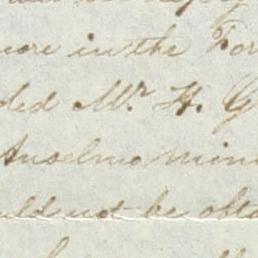 more in the For
ded Mr. H. G
Anselmo min
uld not be obta